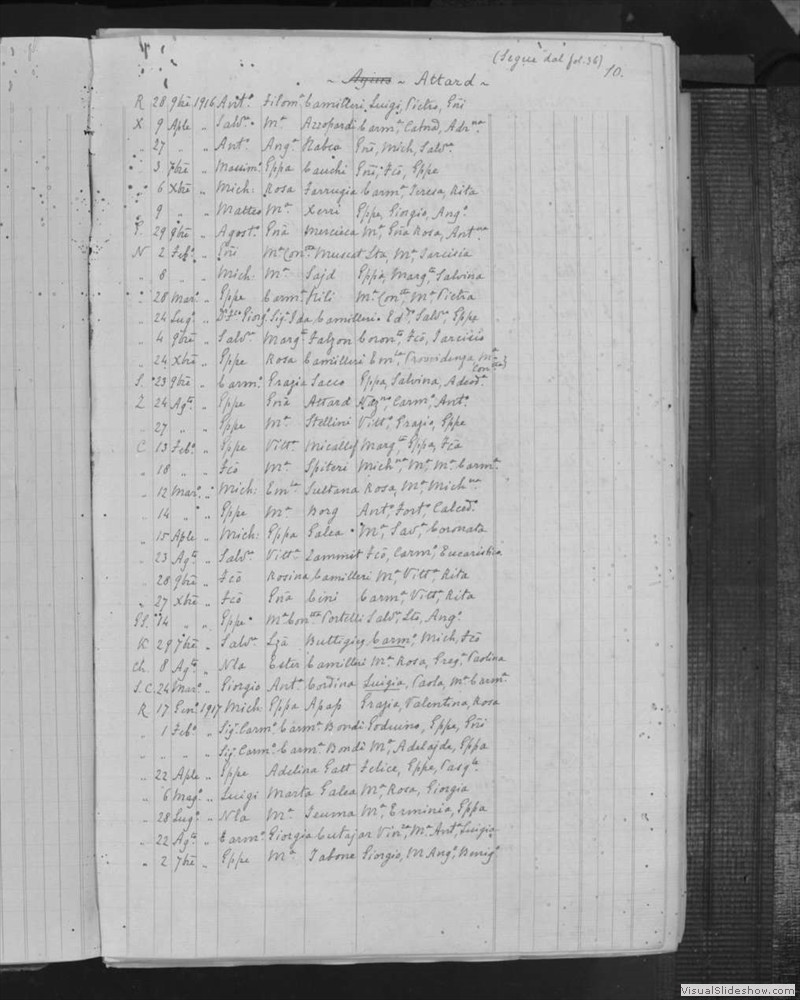 (Segue dal fol. 36)
10.
~ Agius ~ Attard ~
R 28 9bre 1916 Ant.o Filom.a Camilleri Luigi, Pietro, Gni
X 9 Aple „ Salv.e M.a Azzopardi Carm.a Caterd, Adr.na
„ 27 „ „ Ant.o Ang.a Rabco Gni, Mich, Salv.e
„ 3 7bre „ Massim.o Eppa Cauchi Gni, Fco, Eppe
„ 6 Xbre „ Mich: Rosa Farrugia Carm.a Teresa, Rita
„ 9 „ „ Matteo M.a Xerri Eppe, Giorgio, Ang.o
29 9bre „ Agost.o Gna Mercieca M.a Gna Rosa, Ant.na
N 2 Feb.o „ Gni M.a Con.tta Muscat Sta, M.a Tarcisia
„ 8 „ „ Mich: M.a Said Eppa, Marg.ta Salvina
„ 28 Mar.o „ Eppe Carm.a M.a Con.tta M.a Pietra
„ 24 Lug.o Giorg.o Sig.a Ida Camilleri Ed.o Salv.e Eppe
„ 4 9bre „ Salv.e Marg.ta Falzon Coron.ta Fco, Tarcisio
„ 24 Xbre „ Eppe Rosa Camilleri Em.la Providenza, M.a Con.tta
S. 23 9bre „ Carm.o Grazia Sacco Eppa, Salvina, Adeod.a
Z 24 Ag.to „ Eppe Gna Attard Carm.o Ant.o
„ 27 „ „ Eppe M.a Stellini Vitt.o Grazio, Eppe
C 13 Feb.o „ Eppe Vitt.a Micallef Marg.ta Eppa, Fca
„ 18 „ „ Fco M.a Spiteri Mich.na M.a M.a Carm.a
„ 12 Mar.o „ Mich: Em.la Sultana Rosa, M.a Mich.na
„ 14 „ „ Eppe M.a Borg Ant.o Fort.o Calced.o
„ 15 Aple „ Mich: Eppa Galea M.a Sav.a Coronata
„ 23 Ag.to „ Salv.e Vitt.a Zammit Fco, Carm.o Eucaristica
„ 28 9bre „ Fco Rosina Camilleri M.a Vitt.a Rita
„ 27 Xbre „ Fco Gna Cini Carm.a Vitt.a Rita
14 „ „ Eppe M.a Con.tta Portelli Salv.e Sto, Ang.o
K 29 7bre „ Salv.e Lza Buttigieg Carm.o Mich, Fco
Ch. 8 Ag.to „ Nla Ester Camilleri M.a Rosa, Greg.a Paolina
S.C. 24 Mar.o „ Giorgio Ant.a Cordina Luigia, Paola, M.a Carm.a
R 17 Gen.o 1917 Mich Eppa Apap Grazia, Valentina, Rosa
„ 1 Feb.o „ Sig. Carm.o Carm.a Bondi Goduino, Eppe, Gni
„ „ „ „ Sig. Carm.o Carm.a Bondi M.a Adelajde, Eppa
„ 22 Aple „ Eppe Adelina Gatt Felice, Eppe, Pasq.le
„ 6 Mag.o „ Luigi Marta Galea M.a Rosa, Giorgia
„ 28 Lug.o „ Nla M.a Teuma M.a Erminia, Eppa
„ 22 Ag.to „ Carm.o Giorgia Cutajar Vin.za M.a Ant.a Luigia
„ 2 7bre „ Eppe M.a Tabone Giorgio, M. Ang.o Benig.o
VisualSlideshow.com